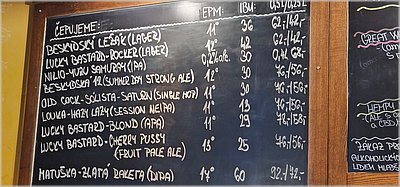 ČEPUJEME: EPM: IBU: 0,5l/0,3l
BESKYDSKÝ LEŽÁK (LAGER) 11° 36 62,-/42,-
LUCKY BASTARD-ROCKER (LAGER) 12° 42 62,-/42,-
NILIO-YUZU SAMURAJ (IPA) 0,2%alc. 30
BESKYDSKÁ 12 (SUMMER DAY STRONG ALE) 12° 30
OLD COCK-SÓLISTA-SATURN (SINGLE HOP) 11° 30 76,-/56,-
LOUKA-HAZY LAZY (SESSION NEIPA) 11° 76,-/56,-
LUCKY BASTARD-BLOND (APA) 11° 29 76,-/56,-
LUCKY BASTARD-CHERRY PUSSY 13° 25 76,-/56,-
(FRUIT PALE ALE)
MATUŠKA-ZLATÁ RAKETA (DIPA) 17° 60 92,-/72,-
GREAT
HEMPU
ZÁKAZ
ALKOHOLICK
LIDEM MLADŠ